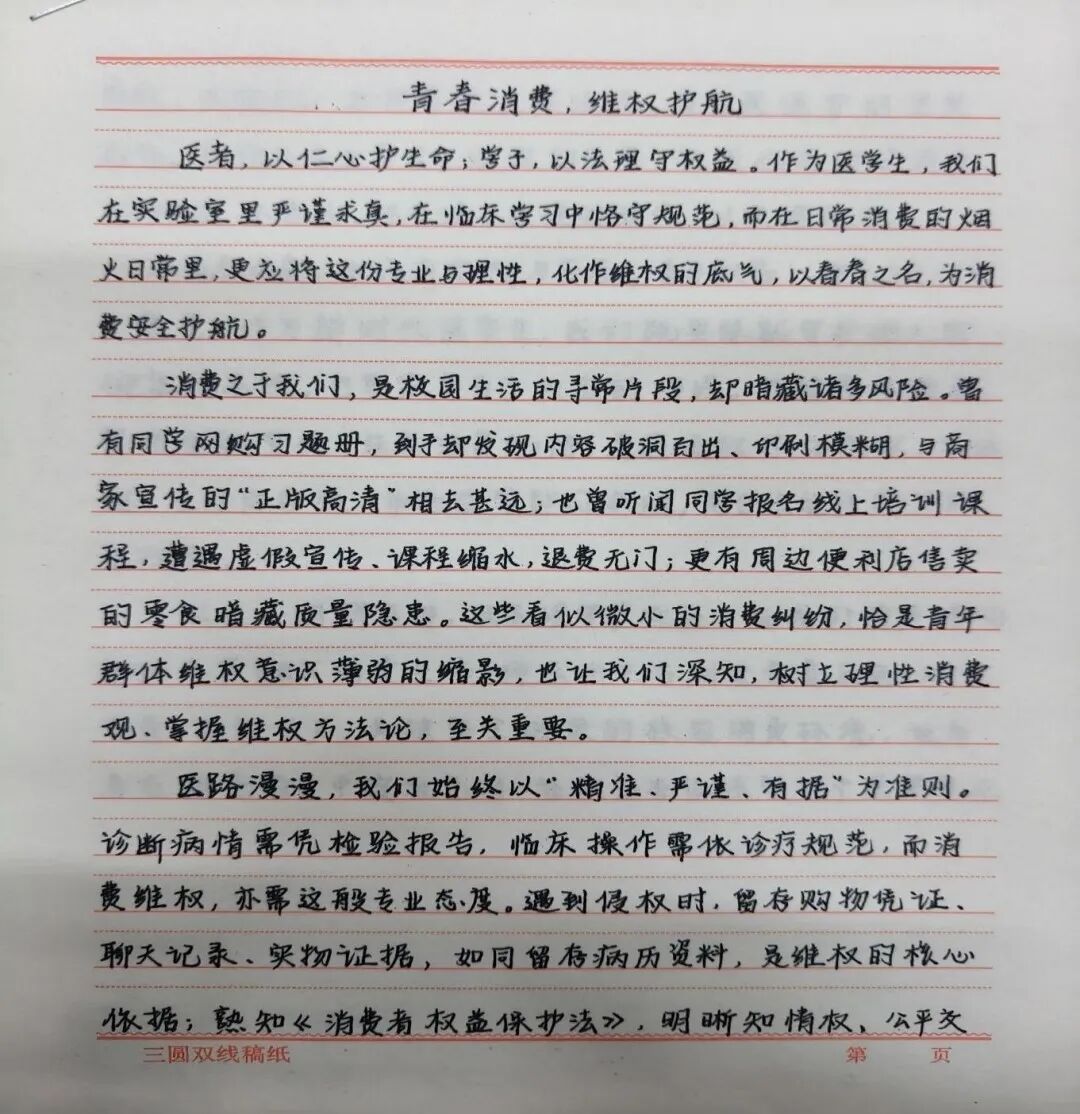 青春消费，维权护航
医者，以仁心护生命；学子，以法理守权益。作为医学生，我们
在实验室里严谨求真，在临床学习中恪守规范，而在日常消费的烟
火日常里，更应将这份专业与理性，化作维权的底气，以青春之名，为消
费安全护航。
消费之于我们，是校园生活的寻常片段，却暗藏诸多风险。曾
有同学网购习题册，到手却发现内容破洞百出、印刷模糊，与商
家宣传的“正版高清”相去甚远；也曾听闻同学报名线上培训课
程，遭遇虚假宣传、课程缩水，退费无门；更有周边便利店售卖
的零食暗藏质量隐患。这些看似微小的消费纠纷，恰是青年
群体维权意识薄弱的缩影，也让我们深知，树立理性消费
观、掌握维权方法论，至关重要。
医路漫漫，我们始终以“精准、严谨、有据”为准则。
诊断病情需凭检验报告，临床操作需依诊疗规范，而消
费维权，亦需这般专业态度。遇到侵权时，留存购物凭证、
聊天记录、实物证据，如同留存病历资料，是维权的核心
依据；熟知《消费者权益保护法》，明晰知情权、公平交
三圆双线稿纸
第 页